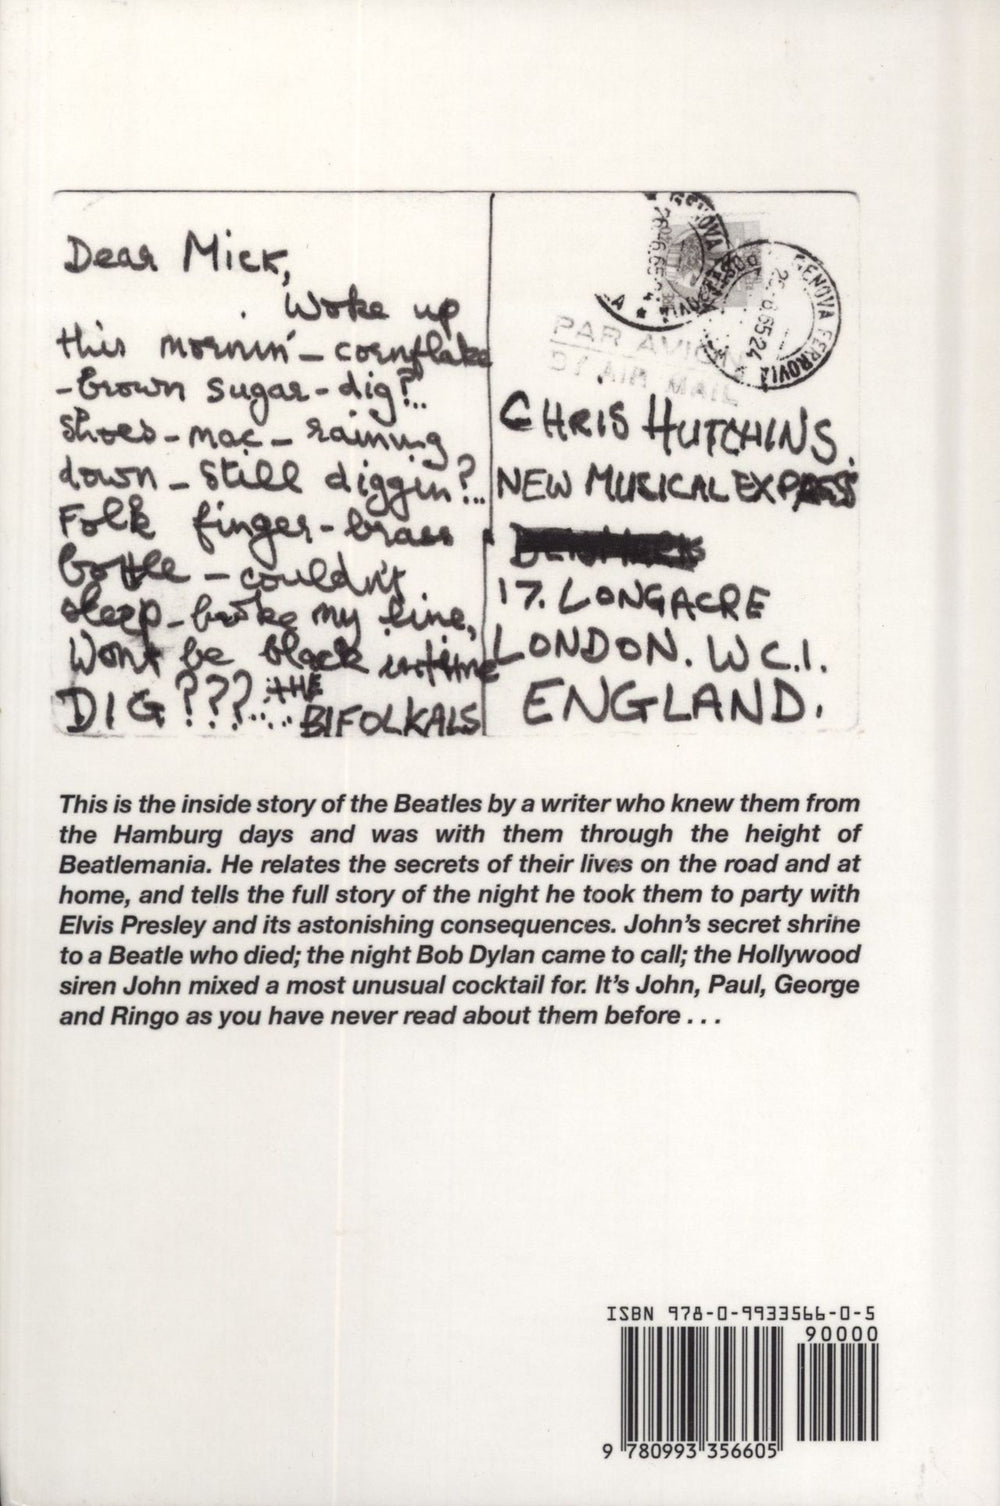 Dear Mick,
Woke up
this mornin' – cornflake
-brown sugar-dig?..
shoes-mac-raining
down – still diggin?..
Folk finger-brass
bottle – couldn't
sleep-broke my line,
Wont be black
DIG???.... THE
BIFOLKALS
GENOVA FERROVIA
26.6.65-24
PAR AVION
BY AIR MAIL
CHRIS HUTCHINS.
NEW MUSICAL EXPRESS
17. LONGACRE
LONDON. W C.1.
ENGLAND.
This is the inside story of the Beatles by a writer who knew them from
the Hamburg days and was with them through the height of
Beatlemania. He relates the secrets of their lives on the road and at
home, and tells the full story of the night he took them to party with
Elvis Presley and its astonishing consequences. John's secret shrine
to a Beatle who died; the night Bob Dylan came to call; the Hollywood
siren John mixed a most unusual cocktail for. It's John, Paul, George
and Ringo as you have never read about them before . . .
ISBN 978-0-9933566-0-5
90000
9 780993 356605